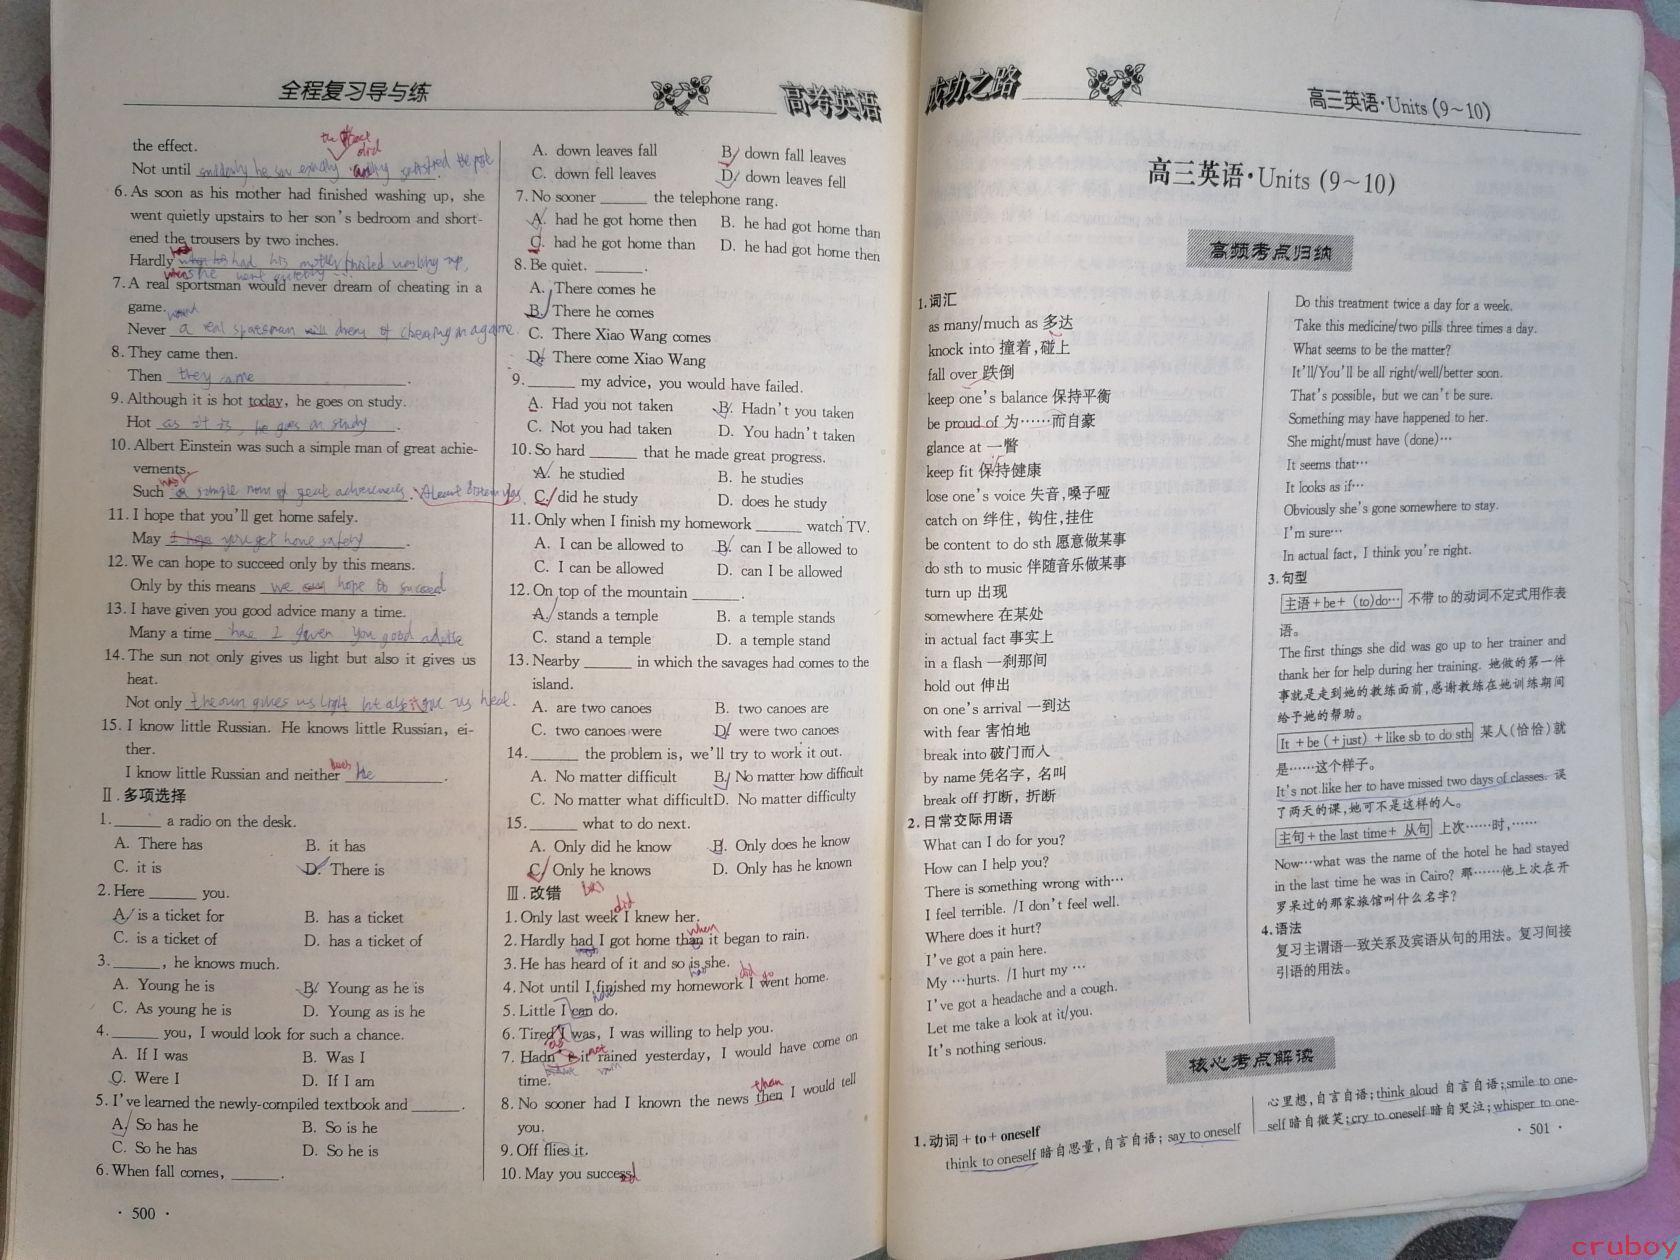 全程复习导与练
高考英语
the effect.
the effect
did
Not until suddenly he saw exactly
6. As soon as his mother had finished washing up, she
went quietly upstairs to her son's bedroom and short-
ened the trousers by two inches.
had
Hardly had his mother finished washing up,
when she went quietly
7. A real sportsman would never dream of cheating in a
game.
would
Never a real sportsman dream of cheating in a game.
8. They came then.
Then they came.
9. Although it is hot today, he goes on study.
Hot as it is, he goes on study.
10. Albert Einstein was such a simple man of great achie-
vements.
was
Such a simple man of great achievements. Albert Einstein was
11. I hope that you'll get home safely.
May I hope you get home safely.
12. We can hope to succeed only by this means.
Only by this means we can hope to succeed
13. I have given you good advice many a time.
Many a time have I given you good advise
14. The sun not only gives us light but also it gives us
heat.
Not only the sun gives us light but also it give us heat.
15. I know little Russian. He knows little Russian, ei-
ther.
does
I know little Russian and neither he.
Ⅱ.多项选择
1. ______ a radio on the desk.
A. There has B. it has
C. it is D. There is
2. Here ______ you.
A. is a ticket for B. has a ticket
C. is a ticket of D. has a ticket of
3. ______, he knows much.
A. Young he is B. Young as he is
C. As young he is D. Young as is he
4. ______ you, I would look for such a chance.
A. If I was B. Was I
C. Were I D. If I am
5. I've learned the newly-compiled textbook and ______.
A. So has he B. So is he
C. So he has D. So he is
6. When fall comes, ______.
· 500 ·
A. down leaves fall B. down fall leaves
C. down fell leaves D. down leaves fell
7. No sooner ______ the telephone rang.
A. had he got home then B. he had got home than
C. had he got home than D. he had got home then
8. Be quiet. ______.
A. There comes he
B. There he comes
C. There Xiao Wang comes
D. There come Xiao Wang
9. ______ my advice, you would have failed.
A. Had you not taken B. Hadn't you taken
C. Not you had taken D. You hadn't taken
10. So hard ______ that he made great progress.
A. he studied B. he studies
C. did he study D. does he study
11. Only when I finish my homework ______ watch TV.
A. I can be allowed to B. can I be allowed to
C. I can be allowed D. can I be allowed
12. On top of the mountain ______.
A. stands a temple B. a temple stands
C. stand a temple D. a temple stand
13. Nearby ______ in which the savages had comes to the
island.
A. are two canoes B. two canoes are
C. two canoes were D. were two canoes
14. ______ the problem is, we'll try to work it out.
A. No matter difficult B. No matter how difficult
C. No matter what difficult D. No matter difficulty
15. ______ what to do next.
A. Only did he know B. Only does he know
C. Only he knows D. Only has he known
Ⅲ.改错
did
1. Only last week I knew her.
when
2. Hardly had I got home than it began to rain.
3. He has heard of it and so is she.
has did go
4. Not until I finished my homework I went home.
have
5. Little I can do.
6. Tired I was, I was willing to help you.
as
not
7. Hadn't it rained yesterday, I would have come on
time.
than
8. No sooner had I known the news then I would tell
you.
9. Off flies it.
10. May you succeed
成功之路
高三英语·Units (9～10)
高三英语·Units (9～10)
高频考点归纳
1.词汇
as many/much as 多达
knock into 撞着,碰上
fall over 跌倒
keep one's balance 保持平衡
be proud of 为……而自豪
glance at 一瞥
keep fit 保持健康
lose one's voice 失音,嗓子哑
catch on 绊住,钩住,挂住
be content to do sth 愿意做某事
do sth to music 伴随音乐做某事
turn up 出现
somewhere 在某处
in actual fact 事实上
in a flash 一刹那间
hold out 伸出
on one's arrival 一到达
with fear 害怕地
break into 破门而入
by name 凭名字,名叫
break off 打断,折断
2.日常交际用语
What can I do for you?
How can I help you?
There is something wrong with…
I feel terrible. /I don't feel well.
Where does it hurt?
I've got a pain here.
My …hurts. /I hurt my …
I've got a headache and a cough.
Let me take a look at it/you.
It's nothing serious.
Do this treatment twice a day for a week.
Take this medicine/two pills three times a day.
What seems to be the matter?
It'll/You'll be all right/well/better soon.
That's possible, but we can't be sure.
Something may have happened to her.
She might/must have (done)…
It seems that…
It looks as if…
Obviously she's gone somewhere to stay.
I'm sure…
In actual fact, I think you're right.
3.句型
主语+be+(to)do… 不带 to 的动词不定式用作表
语。
The first things she did was go up to her trainer and
thank her for help during her training. 她做的第一件
事就是走到她的教练面前,感谢教练在她训练期间
给予她的帮助。
It +be (+just) +like sb to do sth 某人(恰恰)就
是……这个样子。
It's not like her to have missed two days of classes. 误
了两天的课,她可不是这样的人。
主句+the last time+ 从句 上次……时,……
Now…what was the name of the hotel he had stayed
in the last time he was in Cairo? 那……他上次在开
罗呆过的那家旅馆叫什么名字?
4.语法
复习主谓语一致关系及宾语从句的用法。复习间接
引语的用法。
核心考点解读
1.动词+to+oneself
think to oneself 暗自思量,自言自语; say to oneself
心里想,自言自语;think aloud 自言自语;smile to one-
self 暗自微笑;cry to oneself 暗自哭泣;whisper to one-
· 501 ·
cruboy